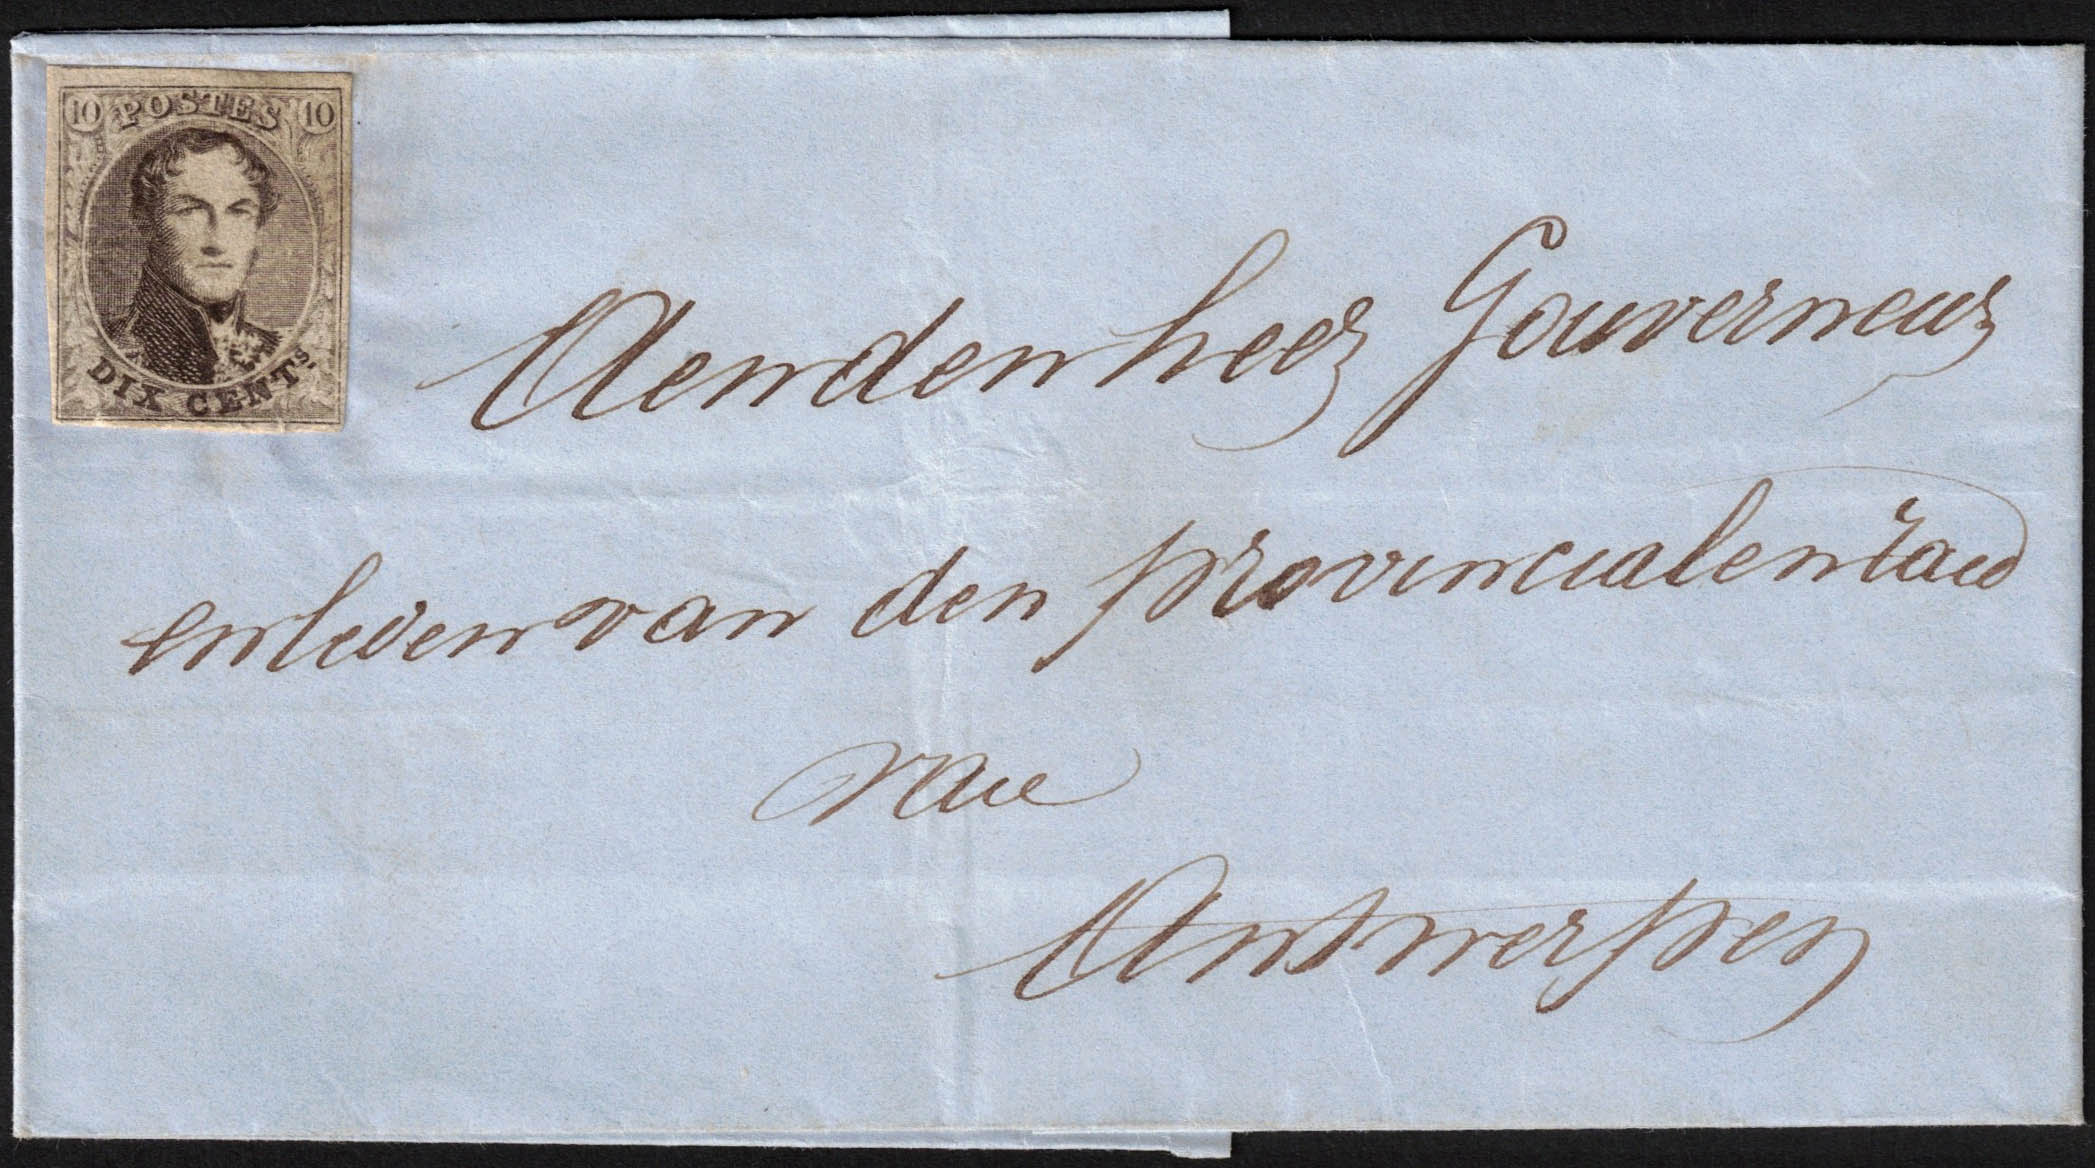 10 POSTES 10
DIX CENTS
Aen den heer Gouverneur
en leden van den provincialen raed
Antwerpen